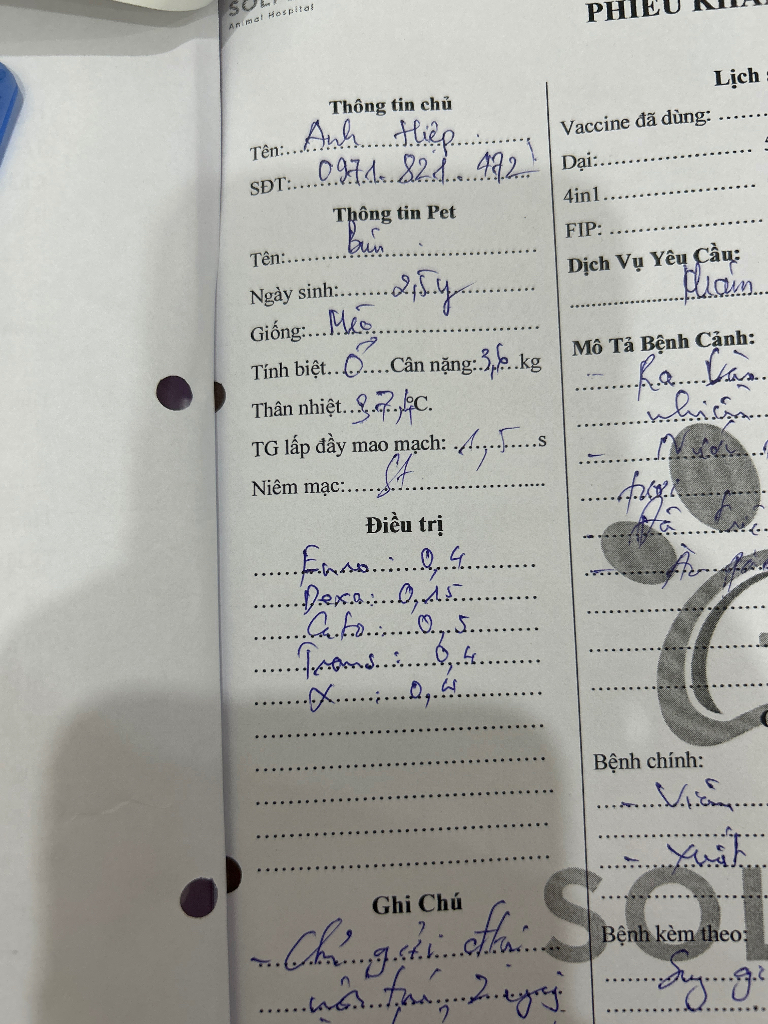 SOL
Animal Hospital
PHIẾU KHÁ
Thông tin chủ
Tên: Anh Hiệp
SĐT: 0971.821.472
Thông tin Pet
Tên: Bún
Ngày sinh: 2,5y
Giống: Mèo
Tính biệt ♂ Cân nặng: 3,6 kg
Thân nhiệt 37,4°C.
TG lấp đầy mao mạch: 1,5 s
Niêm mạc:
Điều trị
Enro: 0,4
Dexa: 0,15
Cato: 0,5
Trans: 0,4
α: 0,4
Ghi Chú
- Chủ gửi
2 ngày
Lịch
Vaccine đã dùng:
Dại:
4in1
FIP:
Dịch Vụ Yêu Cầu:
Khám
Mô Tả Bệnh Cảnh:
- Ra
nhiên
-
tươi
-
- Ăn
Bệnh chính:
- Viêm
- Xuất
SOL
Bệnh kèm theo:
Suy gi